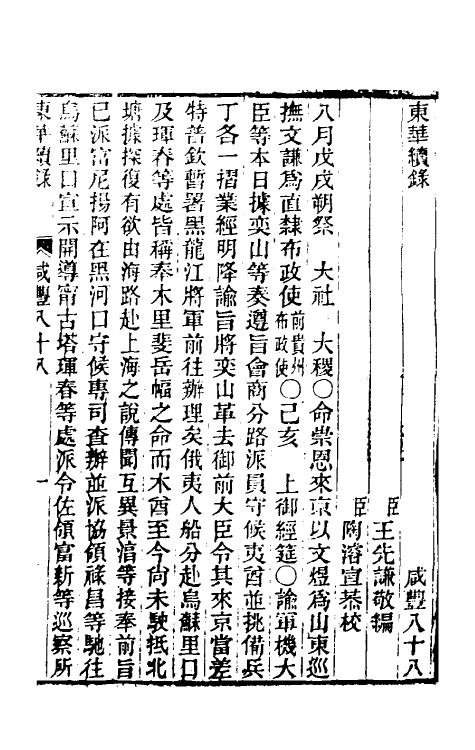 東華續錄　咸豐八十八
臣王先謙敬編
臣陶濬宣恭校
八月戊戌朔祭　大社　大稷〇命崇恩來京以文煜爲山東巡
撫文謙爲直隸布政使前貴州布政使〇己亥　上御經筵〇諭軍機大
臣等本日據奕山等奏遵旨會商分路派員守候夷酋並挑備兵
丁各一摺業經明降諭旨將奕山革去御前大臣令其來京當差
特普欽暫署黑龍江將軍前往辦理矣俄夷人船分赴烏蘇里口
及琿春等處皆稱奉木里斐岳幅之命而木酋至今尚未駛抵北
塘據探復有欲由海路赴上海之說傳聞互異景淳等接奉前旨
已派富尼揚阿在黑河口守候專司查辦並派協領祿昌等馳往
烏蘇里口宣示開導甯古塔琿春等處派令佐領富新等巡察所
東華續錄　咸豐八十八　一